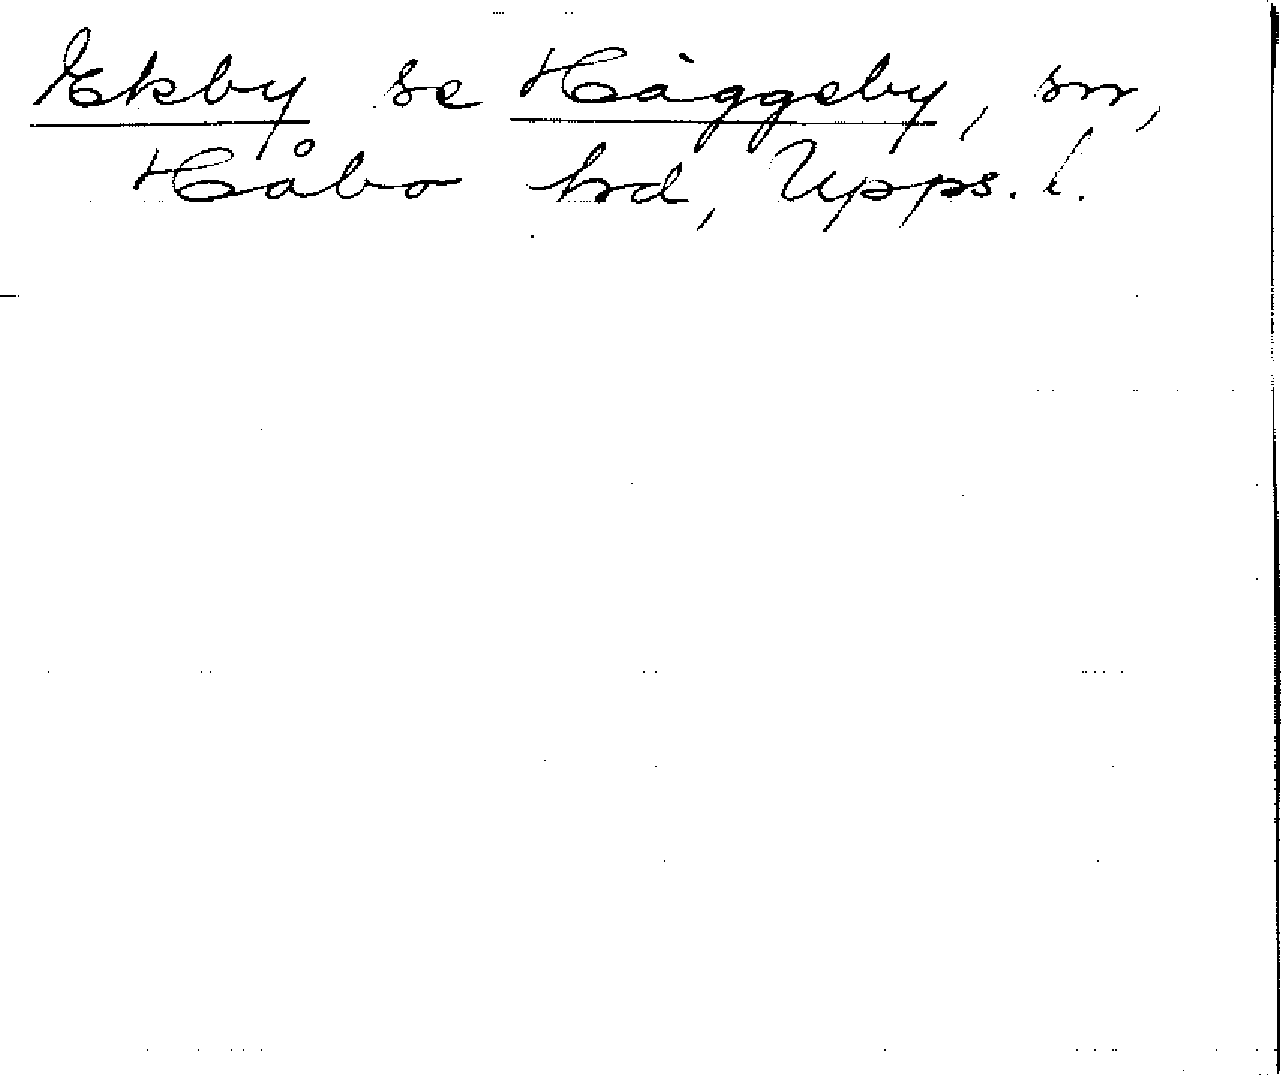 Ekby se Häggeby, sn,
Håbo hd, Upps. l.